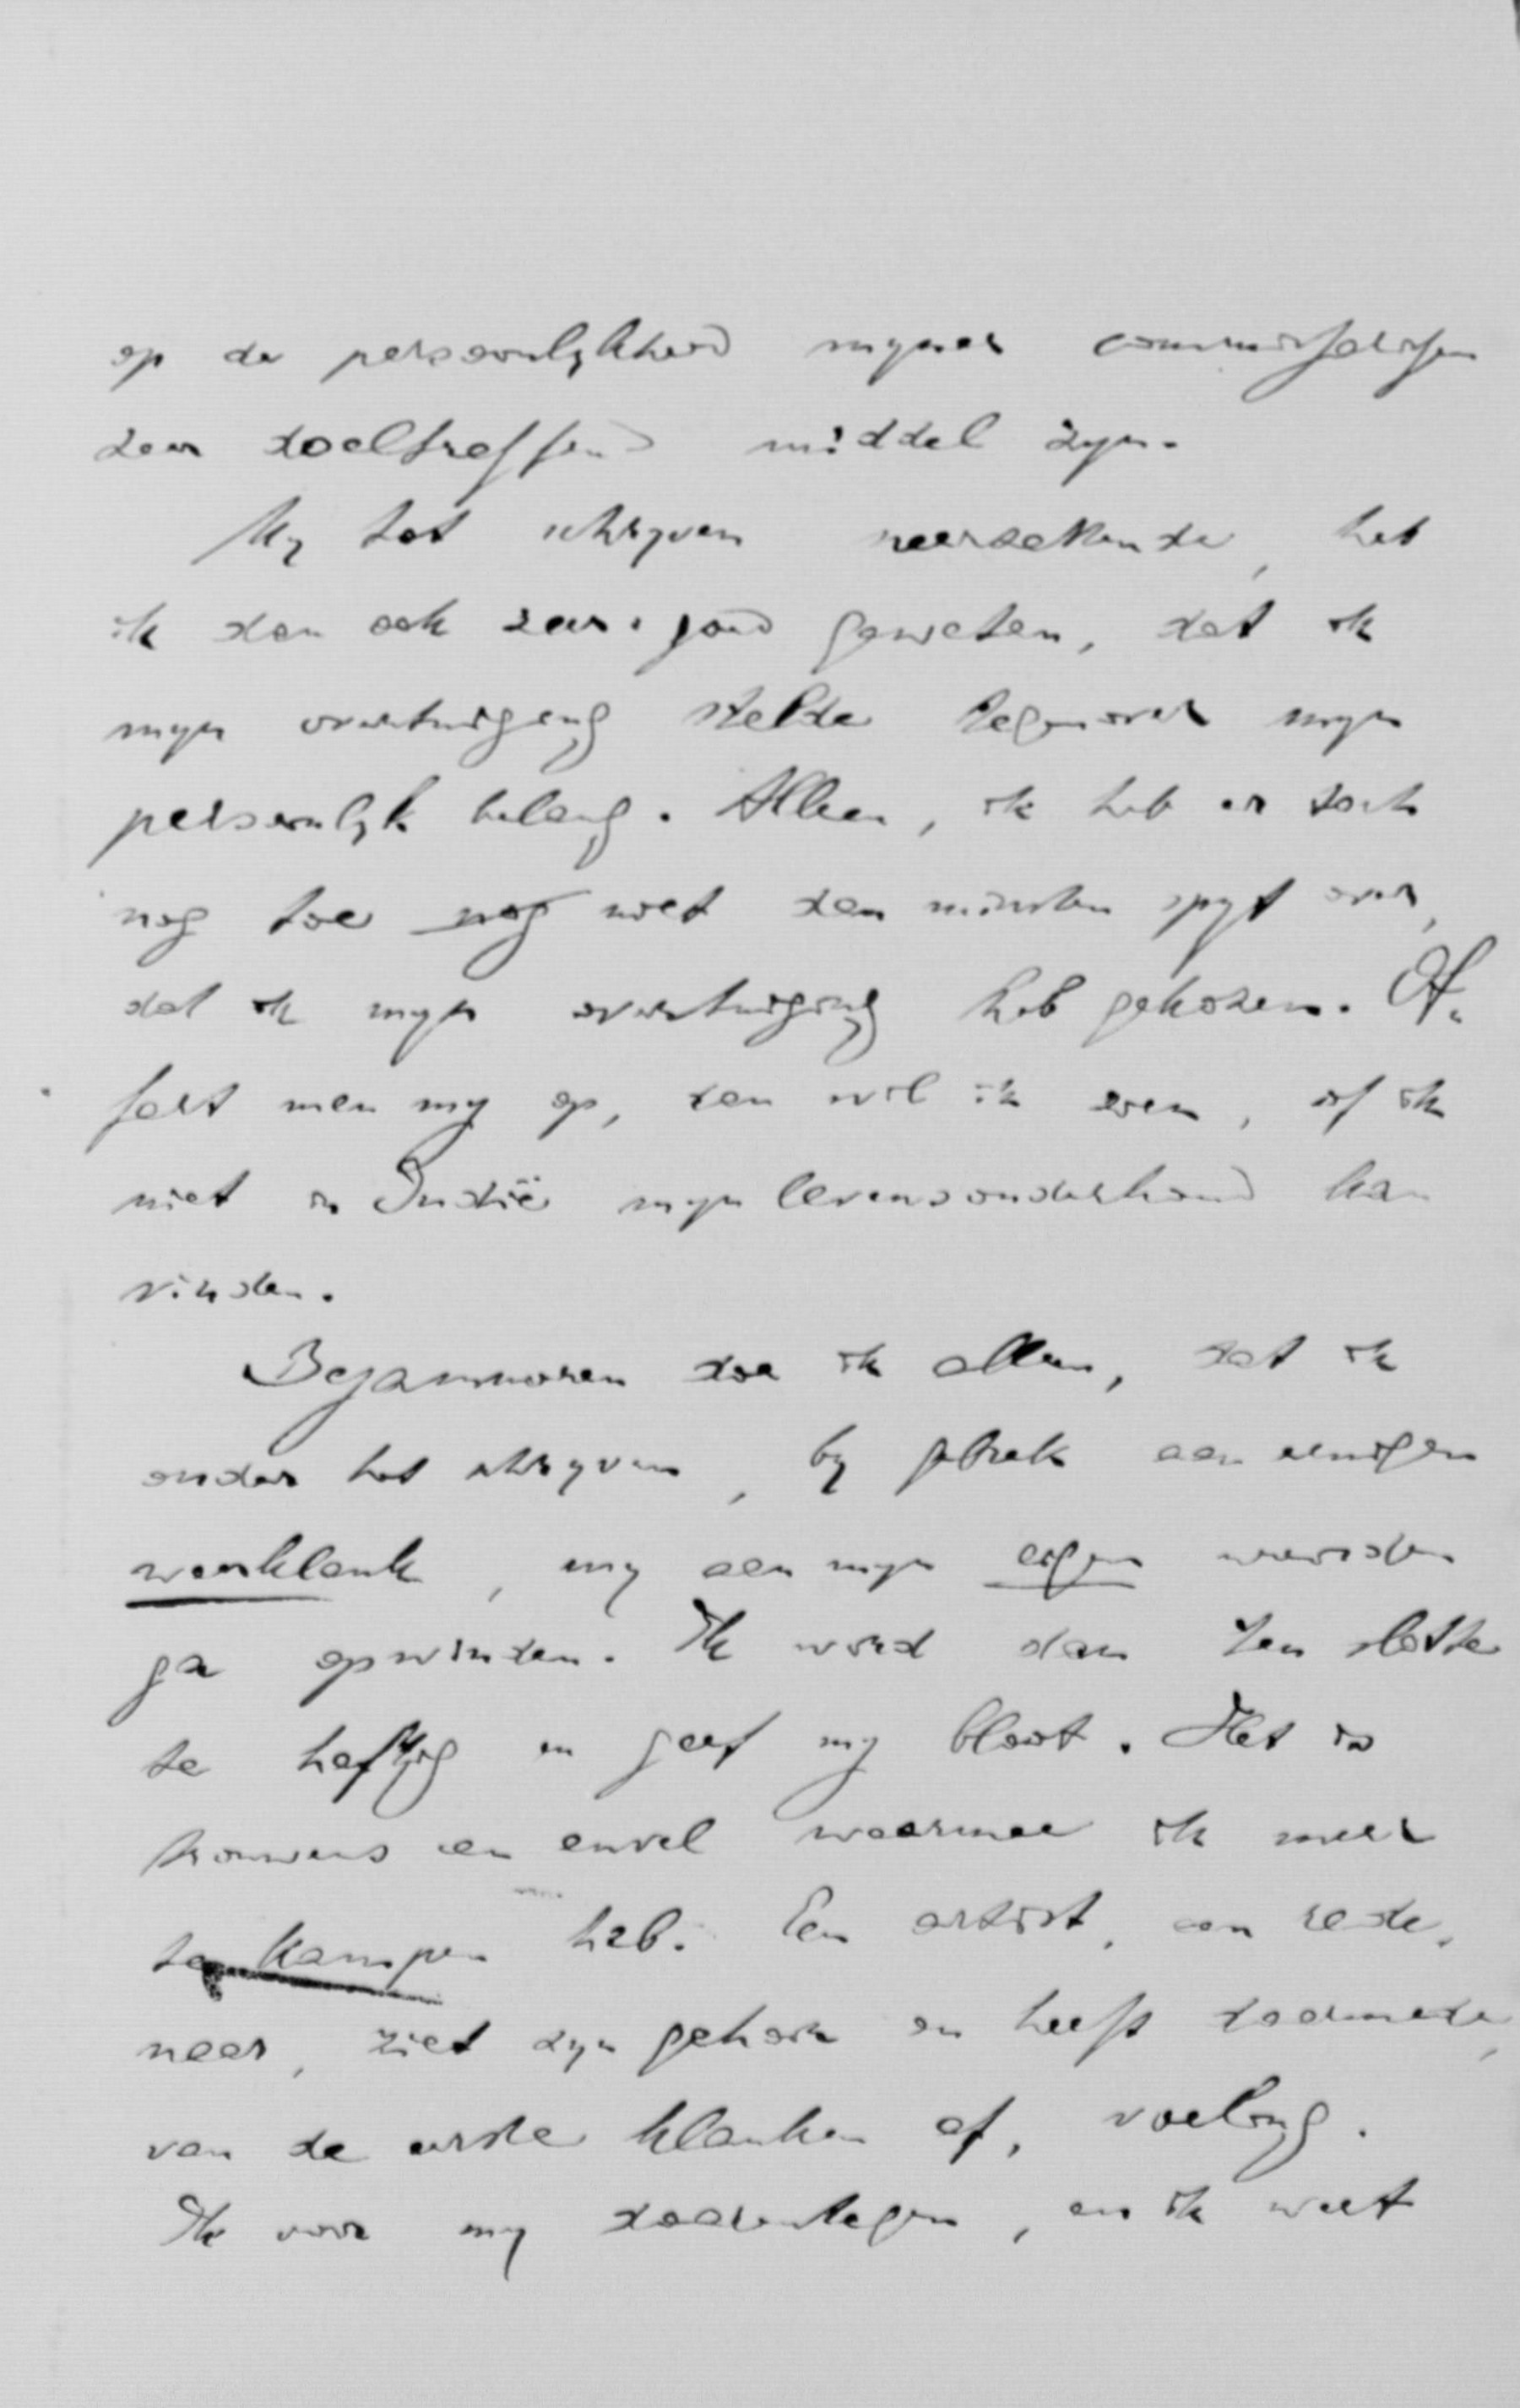 op de persoonlykheid myner commissarissen
zeer doeltreffend middel zyn.
My tot schryven neerzettende, heb
ik dan ook zeer goed geweten, dat ik
myn overtuiging stelde tegenover myn
persoonlyk belang. Alleen, ik heb er toch
nog toe nog niet den minsten spyt over,
dat ik myn overtuiging heb gekozen. Of-
fert men my op, dan wil ik zien, of ik
niet in Indië myn levensonderhoud kan
vinden.
Bejammeren doe ik alleen, dat ik
onder het schryven, by gebrek aan eenigen
weerklank, my aan myn eigen woorden
ga opwinden. Ik word dan ten slotte
te heftig en geef my bloot. Het is
trouwens een euvel waarmee ik meer
te kampen heb. Een artist, een rede-
naar, ziet zyn gehoor en heeft daarmede,
van de eerste klanken af, voeling.
Ik voor my daarentegen, en ik weet